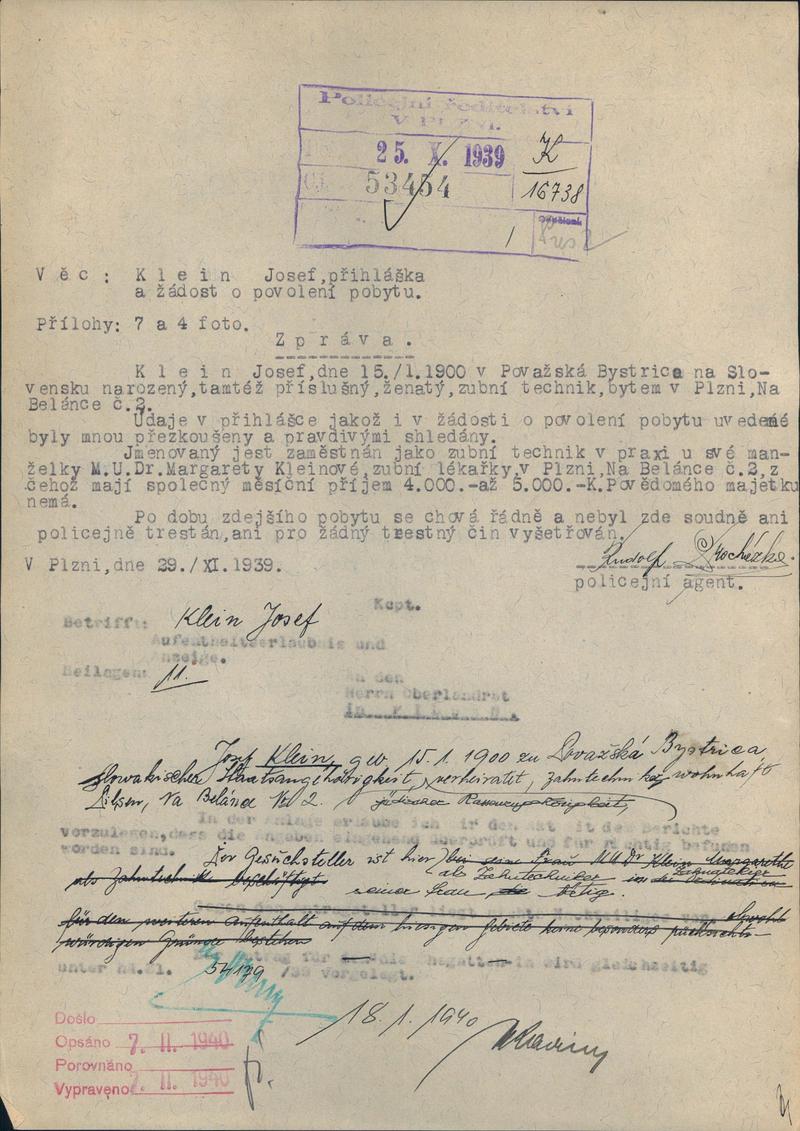 Policejní ředitelství
V Plzni.
25. X. 1939
K
53454
16738
1
Věc: Klein Josef,přihláška
a žádost o povolení pobytu.
Přílohy: 7 a 4 foto.
Zpráva.
Klein Josef,dne 15./1.1900 v Považská Bystrica na Slo-
vensku narozený,tamtéž příslušný,ženatý,zubní technik,bytem v Plzni,Na
Belánce č.2.
Údaje v přihlášce jakož i v žádosti o povolení pobytu uvedené
byly mnou přezkoušeny a pravdivými shledány.
Jmenovaný jest zaměstnán jako zubní technik v praxi u své man-
želky M.U.Dr.Margarety Kleinové,zubní lékařky,v Plzni,Na Belánce č.2,z
čehož mají společný měsíční příjem 4.000.-až 5.000.-K.Povědomého majetku
nemá.
Po dobu zdejšího pobytu se chová řádně a nebyl zde soudně ani
policejně trestán,ani pro žádný trestný čin vyšetřován.
V Plzni,dne 29./XI.1939.
Rudolf Procházka.
policejní agent.
Kcpt.
Betrifft: Klein Josef
Aufenthaltserlaubnis und
Anzeige.
Beilagen: 11.
An den
Herrn Oberlandrat
in
Josef Klein, geb 15.1.1900 zu Považská Bystrica,
slowakischer Staatsangehörigkeit, verheiratet, wohnhaft
Pilsen, Na Belánce Nr 2.
In der Anlage erlaube ich mir den Akt mit dem Berichte
vorzulegen,dass die Angaben eingehend überprüft und für richtig befunden
worden sind.
Der Gesuchsteller ist hier bei seine Frau MU Dr Klein Margarethe
als Zahntechniker beschäftigt als Zahntechniker in der
seiner Frau, tätig.
für den weiteren Aufenthalt auf dem hiesigen Gebiete keine besonders
würdigen Gründe bestehen
wird gleichzeitig
unter 54179 /39 vorgelegt.
18.1.1940
Došlo
Opsáno 7. II. 1940
Porovnáno
Vypraveno 7. II. 1940